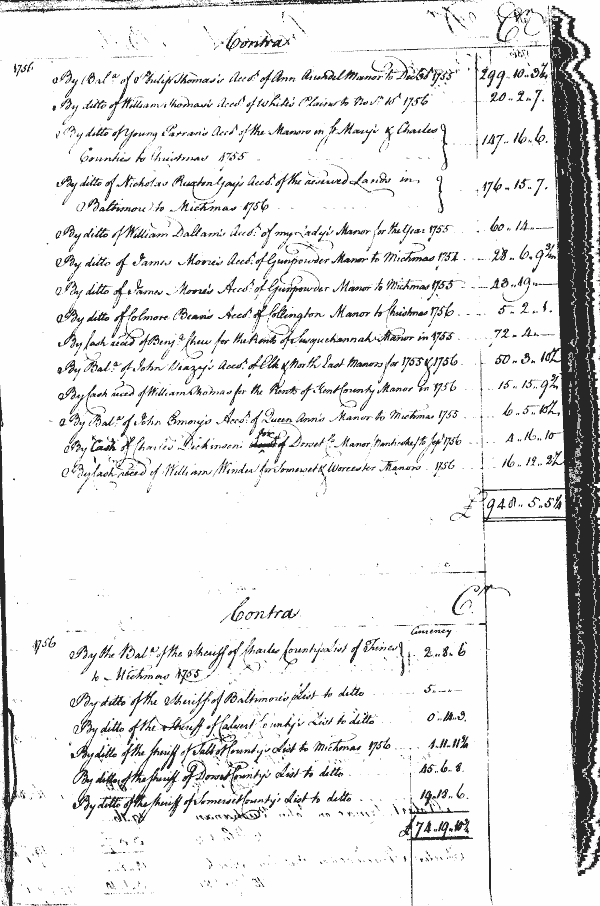 Contra Cr
1756 By Bal.ce of Philip Thomas's Acc.t of Ann Arundel Manor to Dec.r 31 1755 299..10..3½
By ditto of William Thomas's Acc.t of White's Plains to Nov.r 15.th 1756 20..2..7.
By ditto of Young Parran's Acc.t of the Manors in S.t Mary's & Charles
Counties to Christmas 1755 147..16..6.
By ditto of Nicholas Ruxton Gay's Acc.t of the reserved Lands in
Baltimore to Michmas 1756 176..15..7.
By ditto of William Dallam's Acc.t of my Lady's Manor for the Year 1755 60..14..—
By ditto of James Moore's Acc.t of Gunpowder Manor to Michmas 1754 28..6..9¾
By ditto of James Moore's Acc.t of Gunpowder Manor to Michmas 1755 43..19..—
By ditto of Colmore Bean's Acc.t of Collington Manor to Christmas 1756 5..2..1.
By Cash rec.d of Benj.a Chew for the Rents of Susquehannah Manor in 1755 72..4..—
By Bal.ce of John Veazey's Acc.t of Elk & North East Manors for 1755 & 1756 50..3..10½
By Cash rec.d of William Thomas for the Rents of Kent County Manor in 1756 15..15..9¾
By Bal.ce of John Emory's Acc.t of Queen Ann's Manor to Michmas 1755 6..5..10½
By Cash of Charles Dickinson for Dorset Co Manor Nanticoke to Sep.r 1756 4..16..10
By Cash rec.d of William Winder for Somerset & Worcester Manors 1756 16..12..2½
£ 948..5..5¼
Contra Cr
Currency
1756 By the Bal.ce of the Sheriff of Charles County's List of Fines
to Michmas 1755 2..8..6
By ditto of the Sheriff of Baltimore's List to ditto 5..—..—
By ditto of the Sheriff of Calvert County's List to ditto 0..14..3.
By ditto of the Sheriff of Talbot County's List to Michmas 1756 1..11..11½
By ditto of the Sheriff of Dorset County's List to ditto 45..6..8.
By ditto of the Sheriff of Somerset County's List to ditto 19..13..6.
£74..19..10½